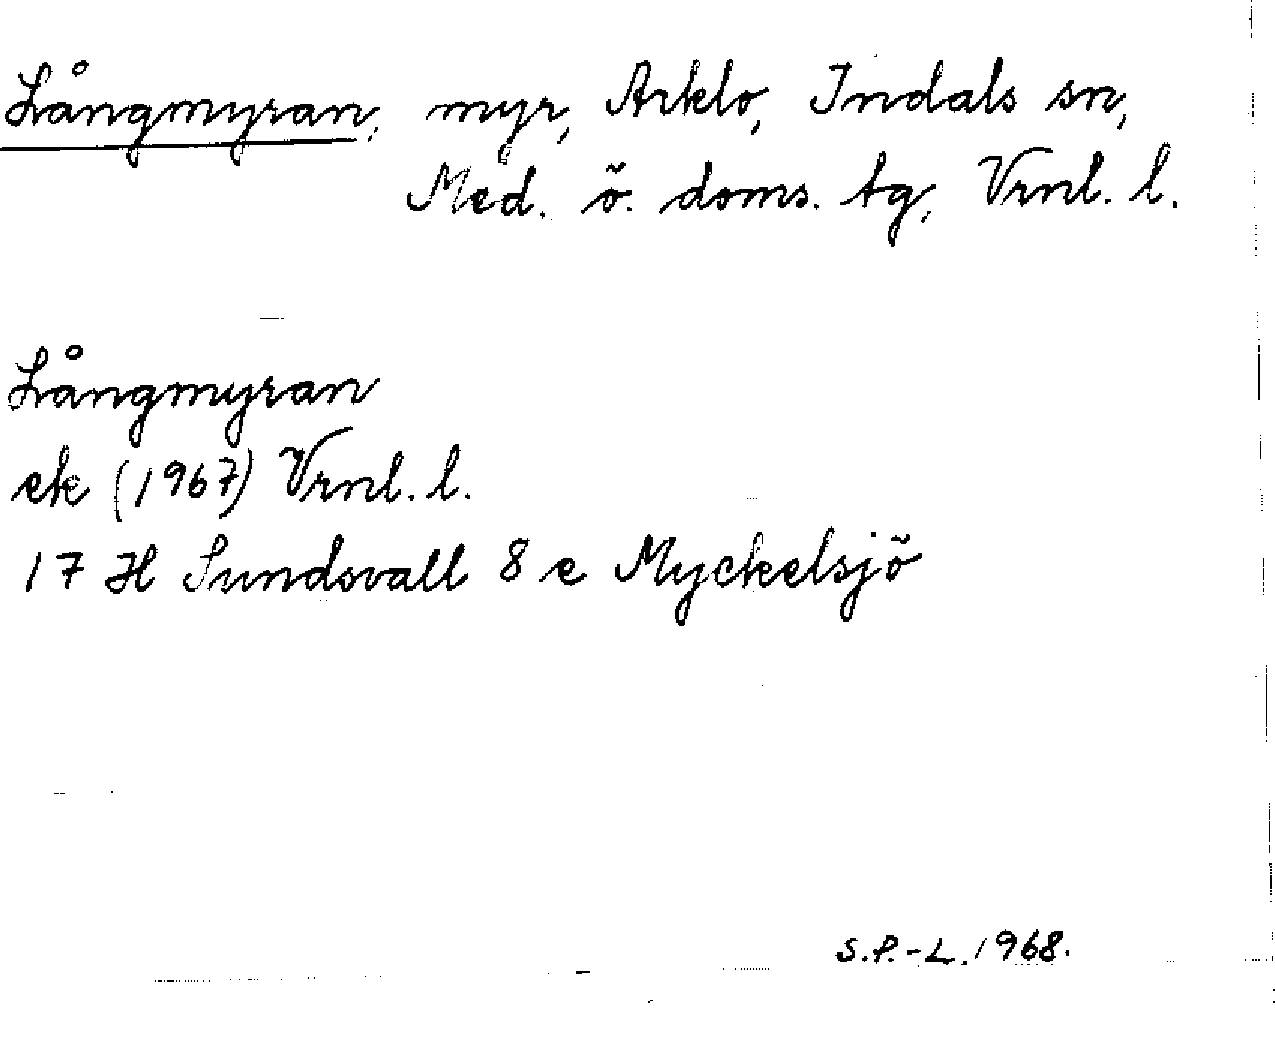 Långmyran, myr, Arklo, Indals sn,
Med. ö. doms. tg, Vrnl. l.
Långmyran
ek (1967) Vrnl. l.
17 H Sundsvall 8 e Myckelsjö
S.P.-L. 1968.